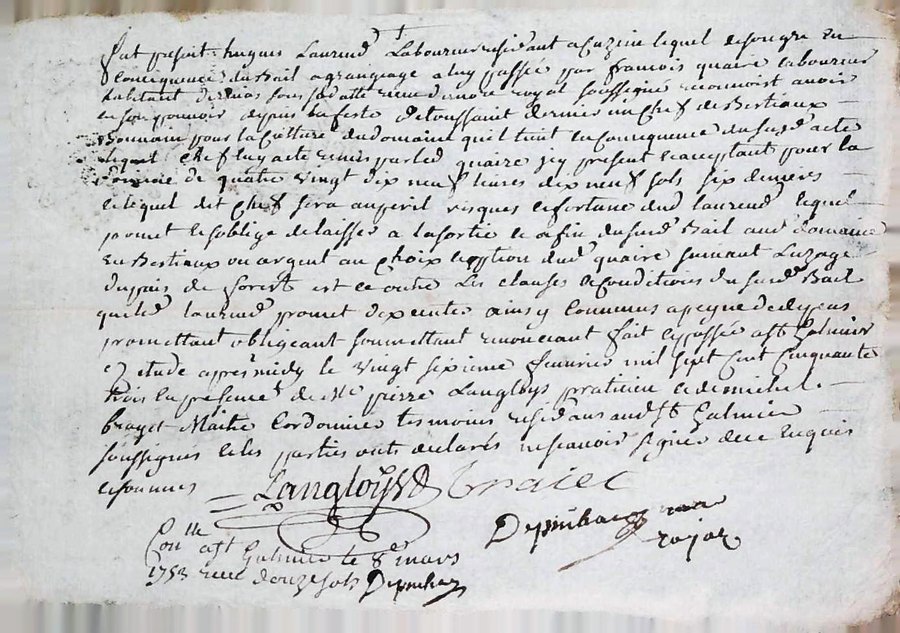 fut present hugues Laurend Laboureur residant a Cuzieu lequel de son gre en
Consequence du Bail a grangeage a luy passée par françois quaire laboureur
habitant sous sa datte receu de moy no.re royal soussigné reconnoist avoir
en son pouvoir depuis la feste de toussaint dernier un Chef de Bestiaux
pour la Culture du domaine quil tient en Consequence du susd acte
lequel Chef luy a este remis par led quaire icy present et acceptant pour la
somme de quatre vingt dix neuf livres dix neuf sols six deniers
lequel dit Chef sera au peril risques et fortune dud laurend lequel
promet et soblige de laisser a la sortie et a fin du susd Bail aud domaine
en Bestiaux ou argent au Choix et option dud quaire suivant Luzage
du païs de forest et en outre Les clauses et Conditions du susd Bail
que led laurend promet dexecuter ainsy Convenus a peyne de depens
promettant obligeant soumettant renonceant fait et passée a st Galmier
Etude apres midy le vingt sixieme fevrier mil sept Cent Cinquante
trois En presence de Me pierre Langloys praticien et de michel
brayet Maitre Cordonnier tesmoins residans aud st Galmier
soussignes et les parties ont declarés ne scavoir signer de ce Enquis
et sommes
Langloys Braiet
roial
Con.lle a st Galmier le 8e mars
1753 receu douze sols